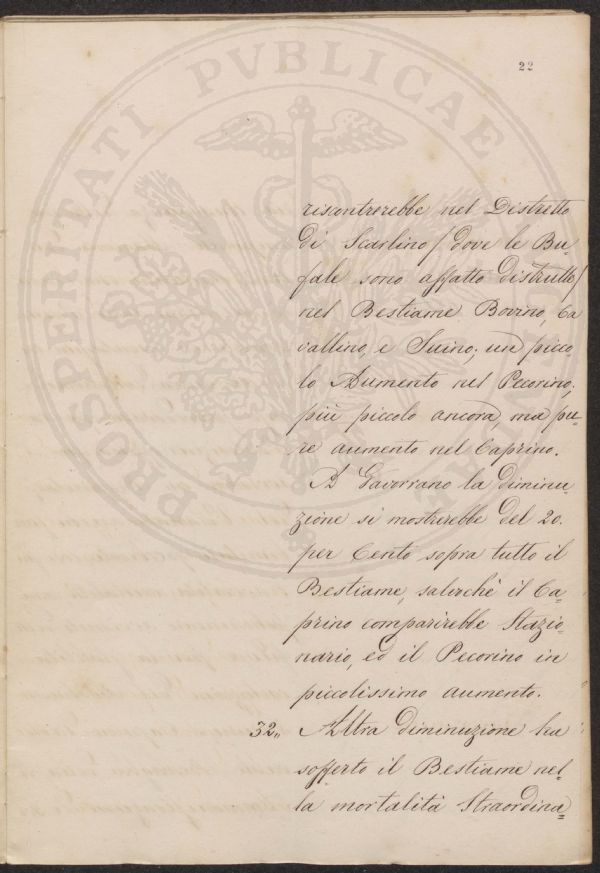 22
PROSPERITATI PVBLICAE
risontrerebbe nel Distretto
di Scarlino / dove le Bu-
fale sono affatto distrutte /
nel Bestiame Bovino, Ca
vallino, e Suino; un picco
lo Aumento nel Pecorino;
più piccolo ancora, ma pu-
re aumento nel Caprino.
A Gavorrano la diminu-
zione si mostrerebbe del 20.
per Cento sopra tutto il
Bestiame, salvochè il Ca-
prino comparirebbe Stazio-
nario, ed il Pecorino in
piccolissimo aumento.
32,, Altra diminuzione ha
sofferto il Bestiame nel-
la mortalità Straordina=